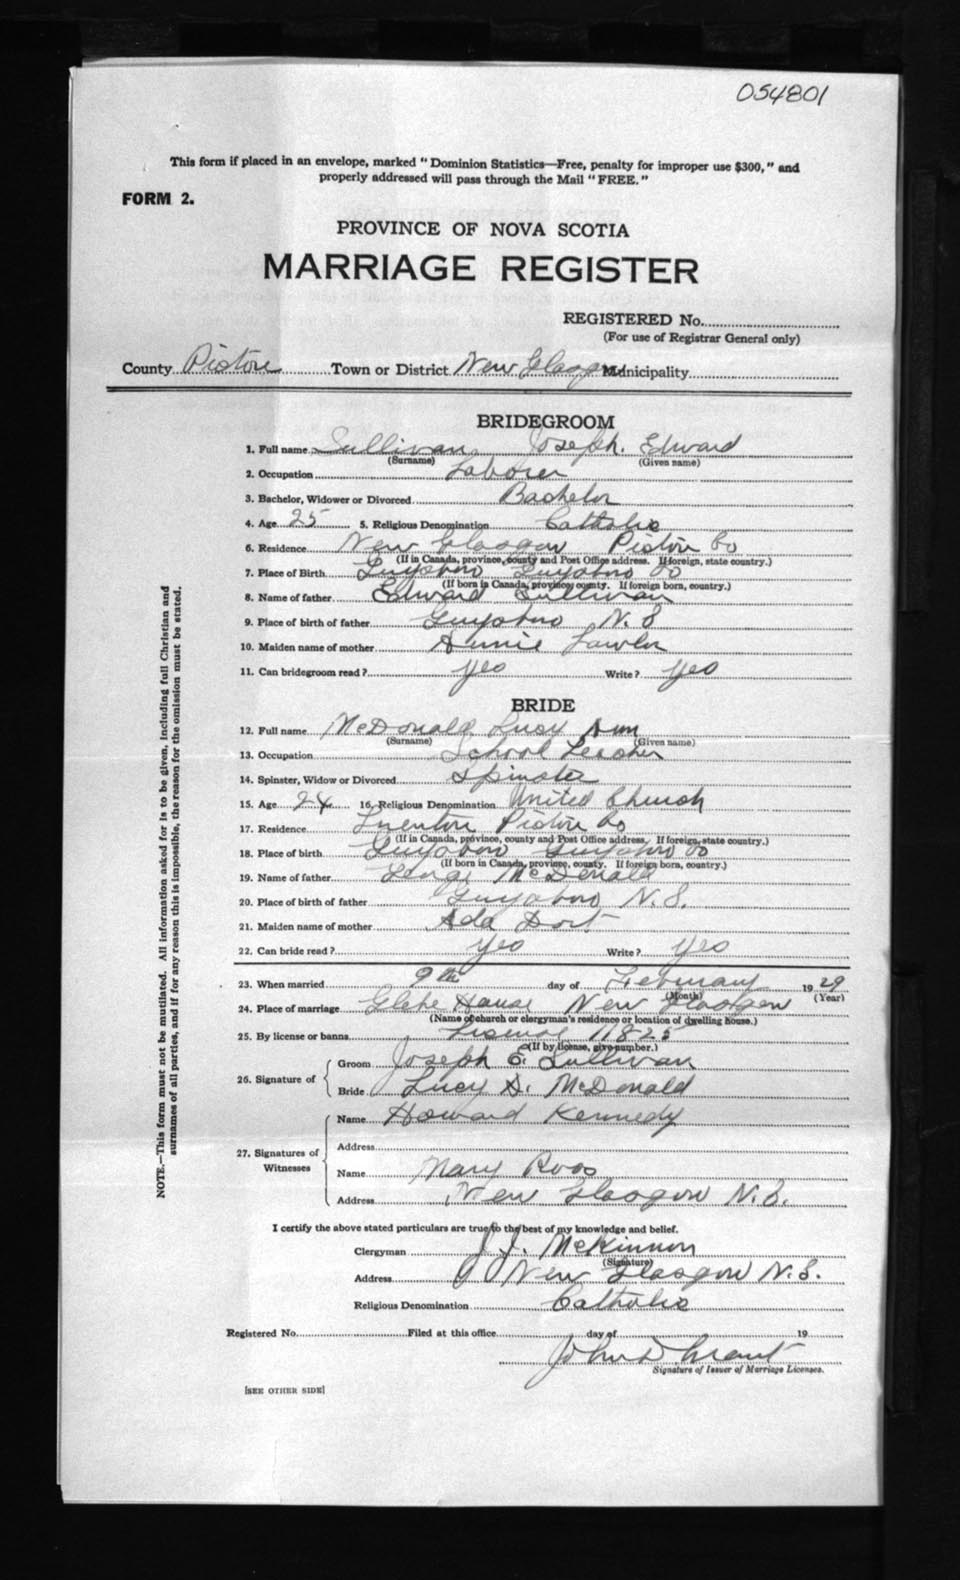 054801
This form if placed in an envelope, marked "Dominion Statistics—Free, penalty for improper use $300," and
properly addressed will pass through the Mail "FREE."
FORM 2.
PROVINCE OF NOVA SCOTIA
MARRIAGE REGISTER
REGISTERED No.
(For use of Registrar General only)
County Pictou Town or District New Glasgow Municipality
BRIDEGROOM
1. Full name Sullivan Joseph. Edward
(Surname) (Given name)
2. Occupation Laborer
3. Bachelor, Widower or Divorced Bachelor
4. Age 25 5. Religious Denomination Catholic
6. Residence New Glasgow Pictou Co
(If in Canada, province, county and Post Office address. If foreign, state country.)
7. Place of Birth Guysboro Guysboro Co
(If born in Canada, province, county. If foreign born, country.)
8. Name of father Edward Sullivan
9. Place of birth of father Guysboro N. S
10. Maiden name of mother Annie Lawlor
11. Can bridegroom read? Yes Write? Yes
BRIDE
12. Full name McDonald, Lucy Ann
(Surname) (Given name)
13. Occupation School Teacher
14. Spinster, Widow or Divorced Spinster
15. Age 24 16. Religious Denomination United Church
17. Residence Trenton Pictou Co
(If in Canada, province, county and Post Office address. If foreign, state country.)
18. Place of birth Guysboro Guysboro Co
(If born in Canada, province, county. If foreign born, country.)
19. Name of father George McDonald
20. Place of birth of father Guysboro N. S.
21. Maiden name of mother Ada Dort
22. Can bride read? Yes Write? Yes
23. When married 9th day of February 19 29
(Month) (Year)
24. Place of marriage Glebe House New Glasgow
(Name of church or clergyman's residence or location of dwelling house.)
25. By license or banns License 11825
(If by license, give number.)
26. Signature of
Groom Joseph E. Sullivan
Bride Lucy A. McDonald
27. Signatures of Witnesses
Name Howard Kennedy
Address
Name Mary Ross
Address New Glasgow N. S.
I certify the above stated particulars are true to the best of my knowledge and belief.
Clergyman J. J. McKinnon
(Signature)
Address New Glasgow N. S.
Religious Denomination Catholic
Registered No. Filed at this office day of 19
John D Grant
Signature of Issuer of Marriage Licenses.
[SEE OTHER SIDE]
NOTE.—This form must not be mutilated. All information asked for is to be given, including full Christian and
surnames of all parties, and if for any reason this is impossible, the reason for the omission must be stated.